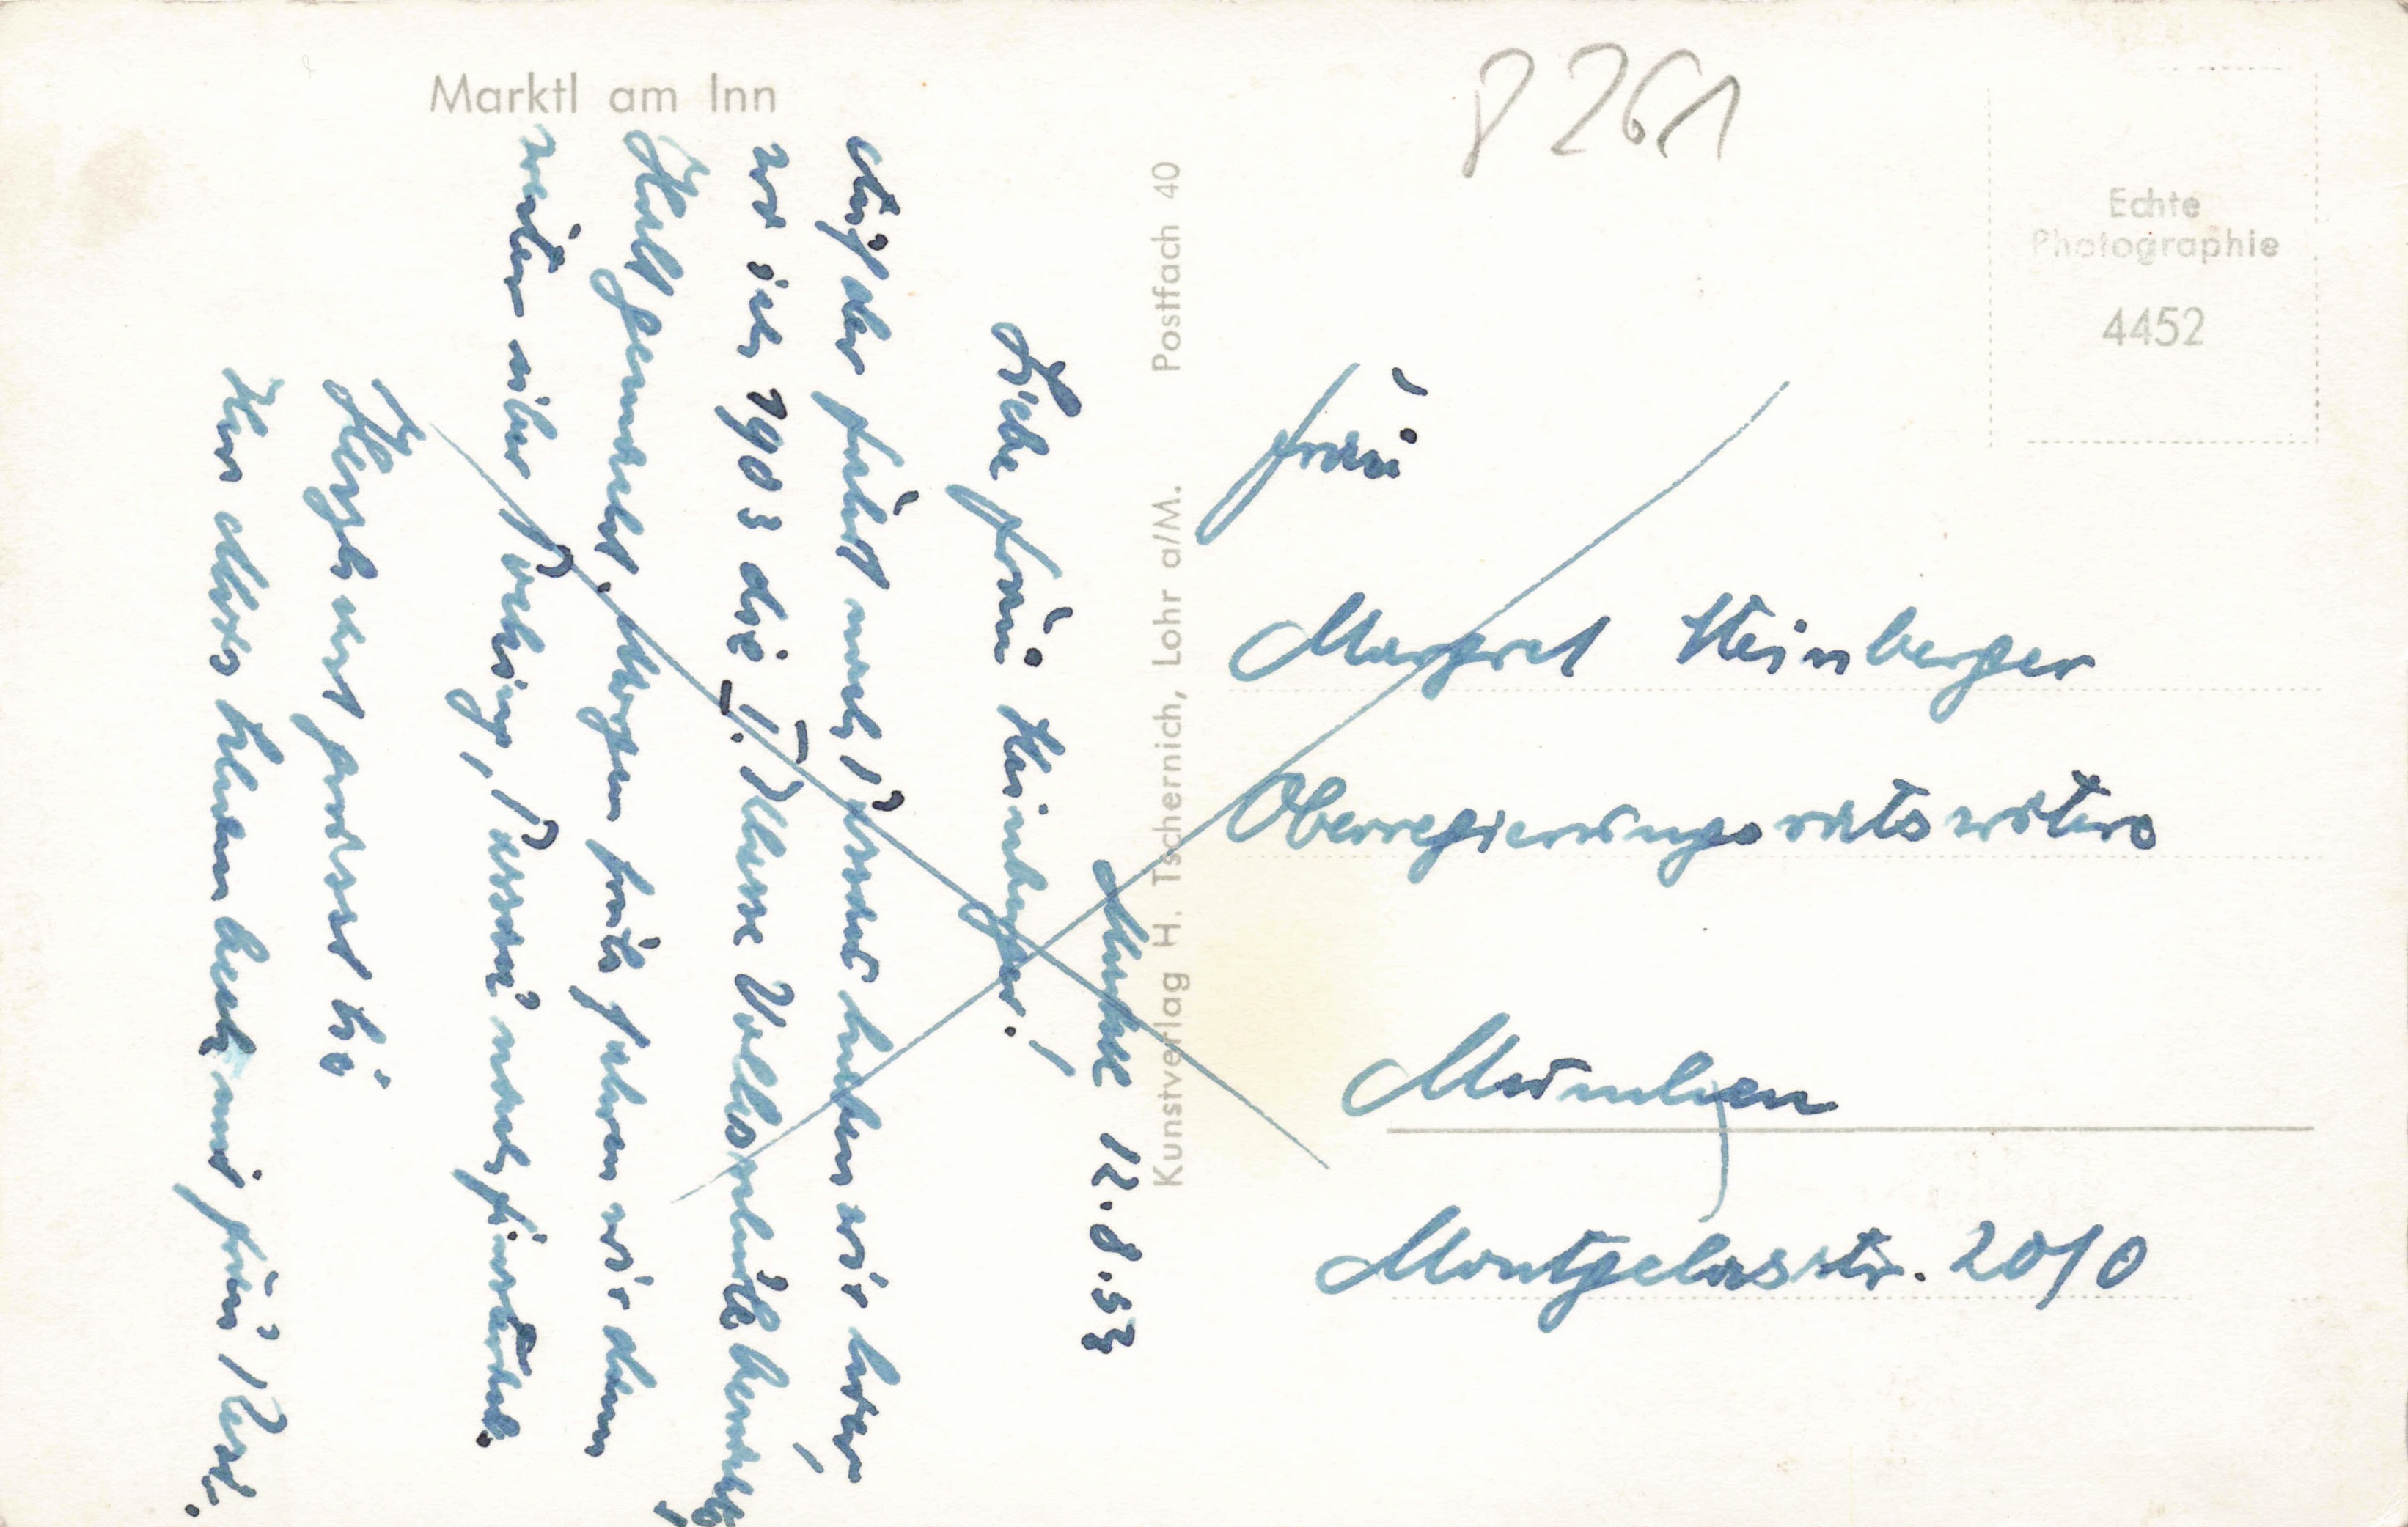 Marktl am Inn
P 261
Echte
Photographie
4452
Kunstverlag H. Tschernich, Lohr a/M. Postfach 40
Marktl 12.8.53
Liebe Frau Steinberger!
Auf der Fahrt nach haben wir hier,
wo ich 1903 die I. Klasse Volksschule besuchte,
Halt gemacht. Morgen früh fahren wir dann
weiter über Pocking, Passau nach
Herzlichst grüsst Sie
Ihr und Frau
Frau
Margret Steinberger
Oberregierungsratswitwe
München
Montgelasstr. 20/0